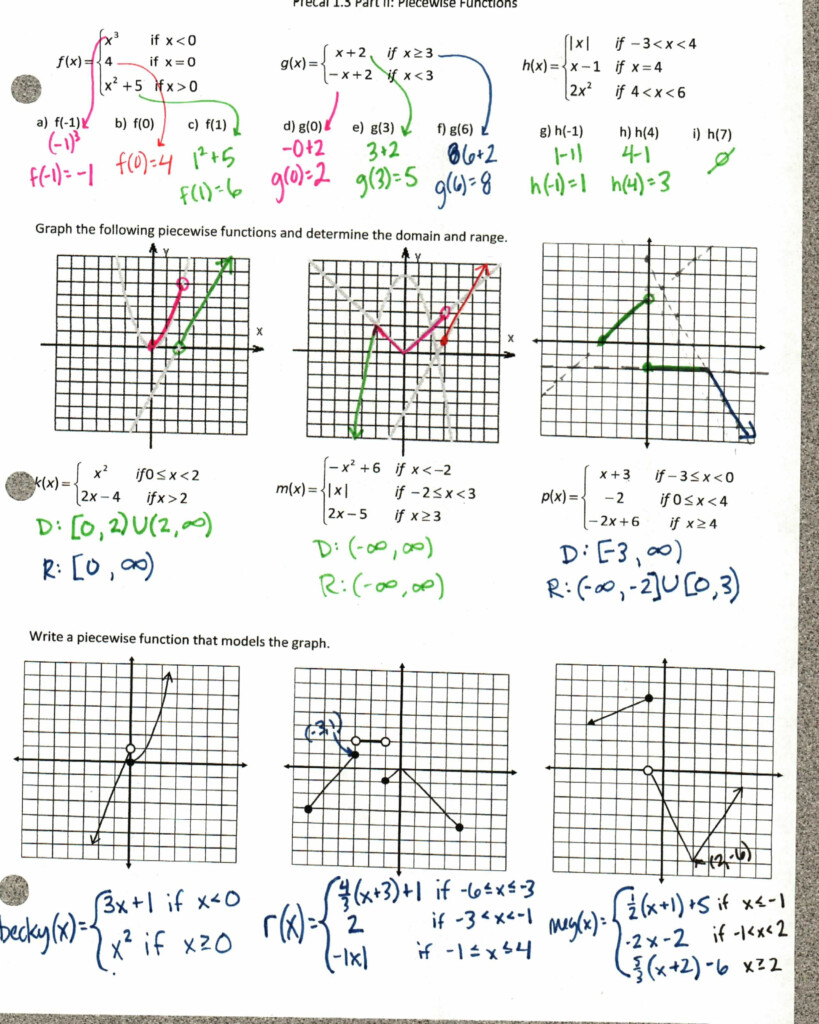 Precal 1.3 Part II: Piecewise Functions
f(x)= { x³ if x<0
4 if x=0
x²+5 if x>0
g(x)= { x+2 if x≥3
−x+2 if x<3
h(x)= { |x| if −3<x<4
x−1 if x=4
2x² if 4<x<6
a) f(-1) b) f(0) c) f(1) d) g(0) e) g(3) f) g(6) g) h(-1) h) h(4) i) h(7)
(-1)³ f(0)=4 1²+5 -0+2 3+2 6+2 |-1| 4-1 ∅
f(-1)=-1 f(1)=6 g(0)=2 g(3)=5 g(6)=8 h(-1)=1 h(4)=3
Graph the following piecewise functions and determine the domain and range.
Y Y
X X
k(x)= { x² if 0≤x<2
2x−4 if x>2
D: [0,2)U(2,∞)
R: [0,∞)
m(x)= { −x²+6 if x<−2
|x| if −2≤x<3
2x−5 if x≥3
D: (-∞,∞)
R: (-∞,∞)
p(x)= { x+3 if −3≤x<0
−2 if 0≤x<4
−2x+6 if x≥4
D: [-3,∞)
R: (-∞,-2]U[0,3)
Write a piecewise function that models the graph.
(-3,1)
(2,-6)
becky(x)= { 3x+1 if x<0
x² if x≥0
r(x)= { 4/3(x+3)+1 if -6≤x≤-3
2 if -3<x<-1
-|x| if -1≤x≤4
meg(x)= { 1/2(x+1)+5 if x≤-1
-2x-2 if -1<x<2
5/3(x+2)-6 x≥2